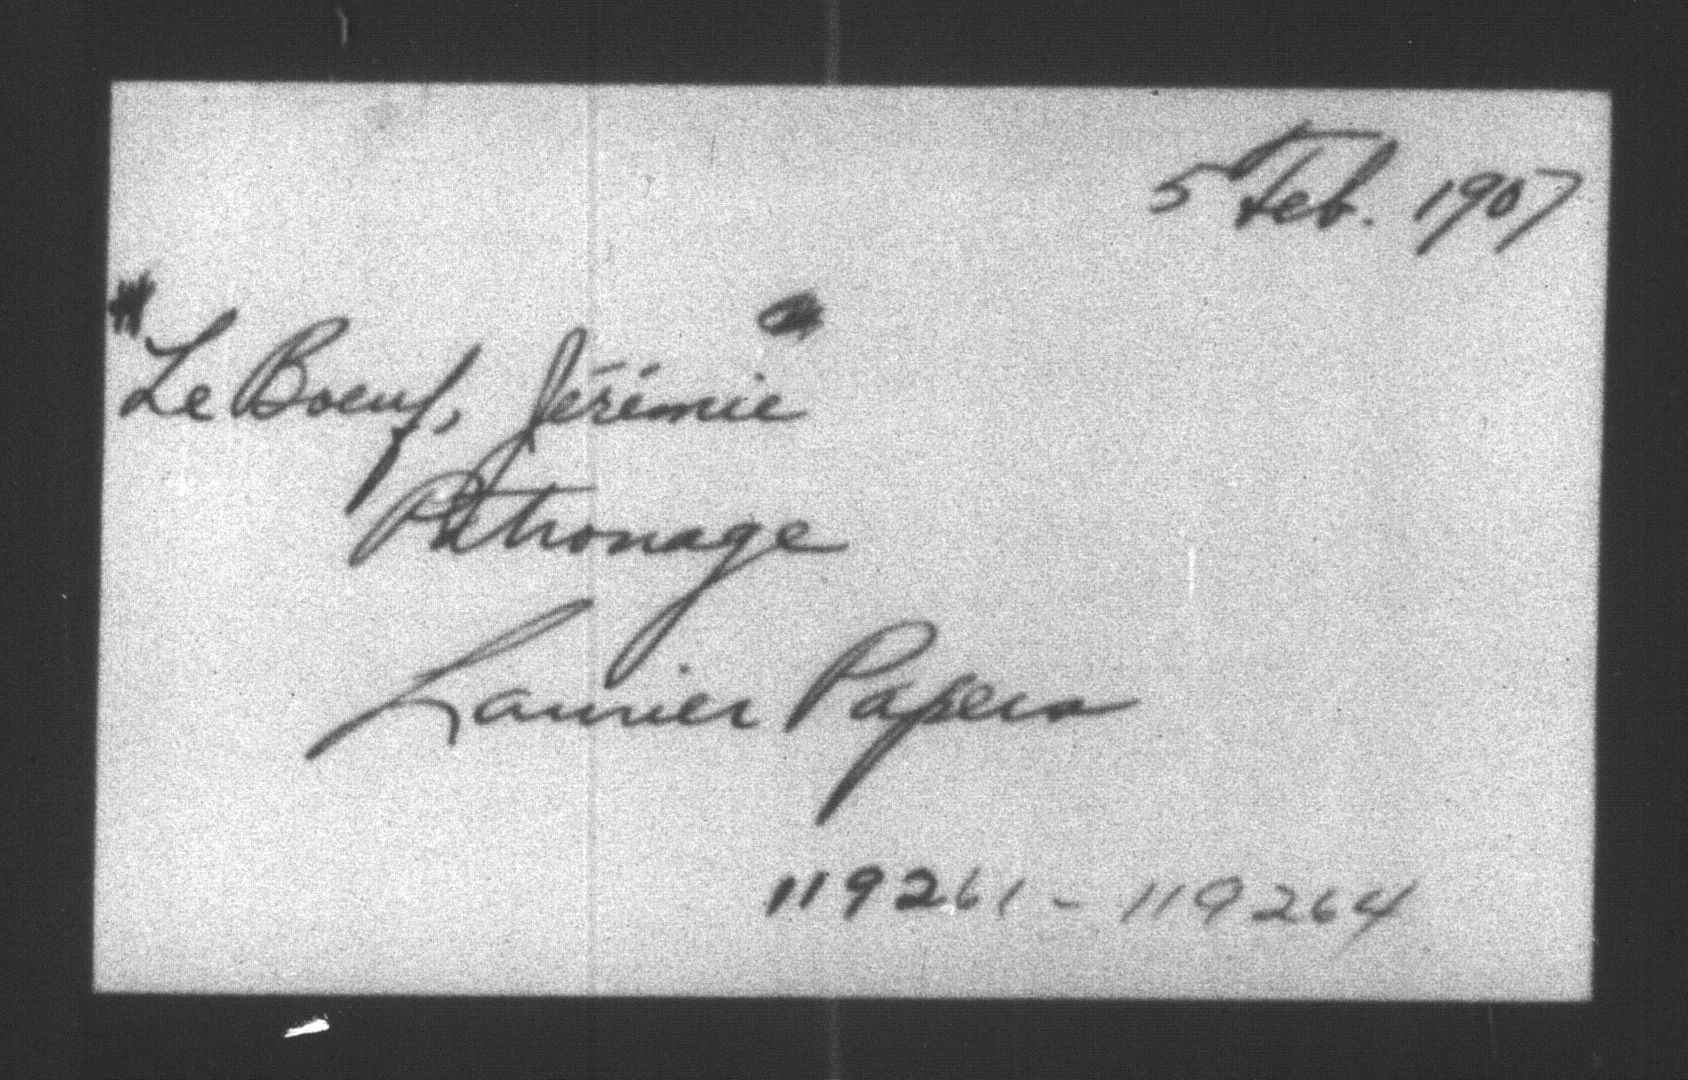 5 Feb. 1907
Le Boeuf, Jérémie
Patronage
Laurier Papers
119261 - 119264